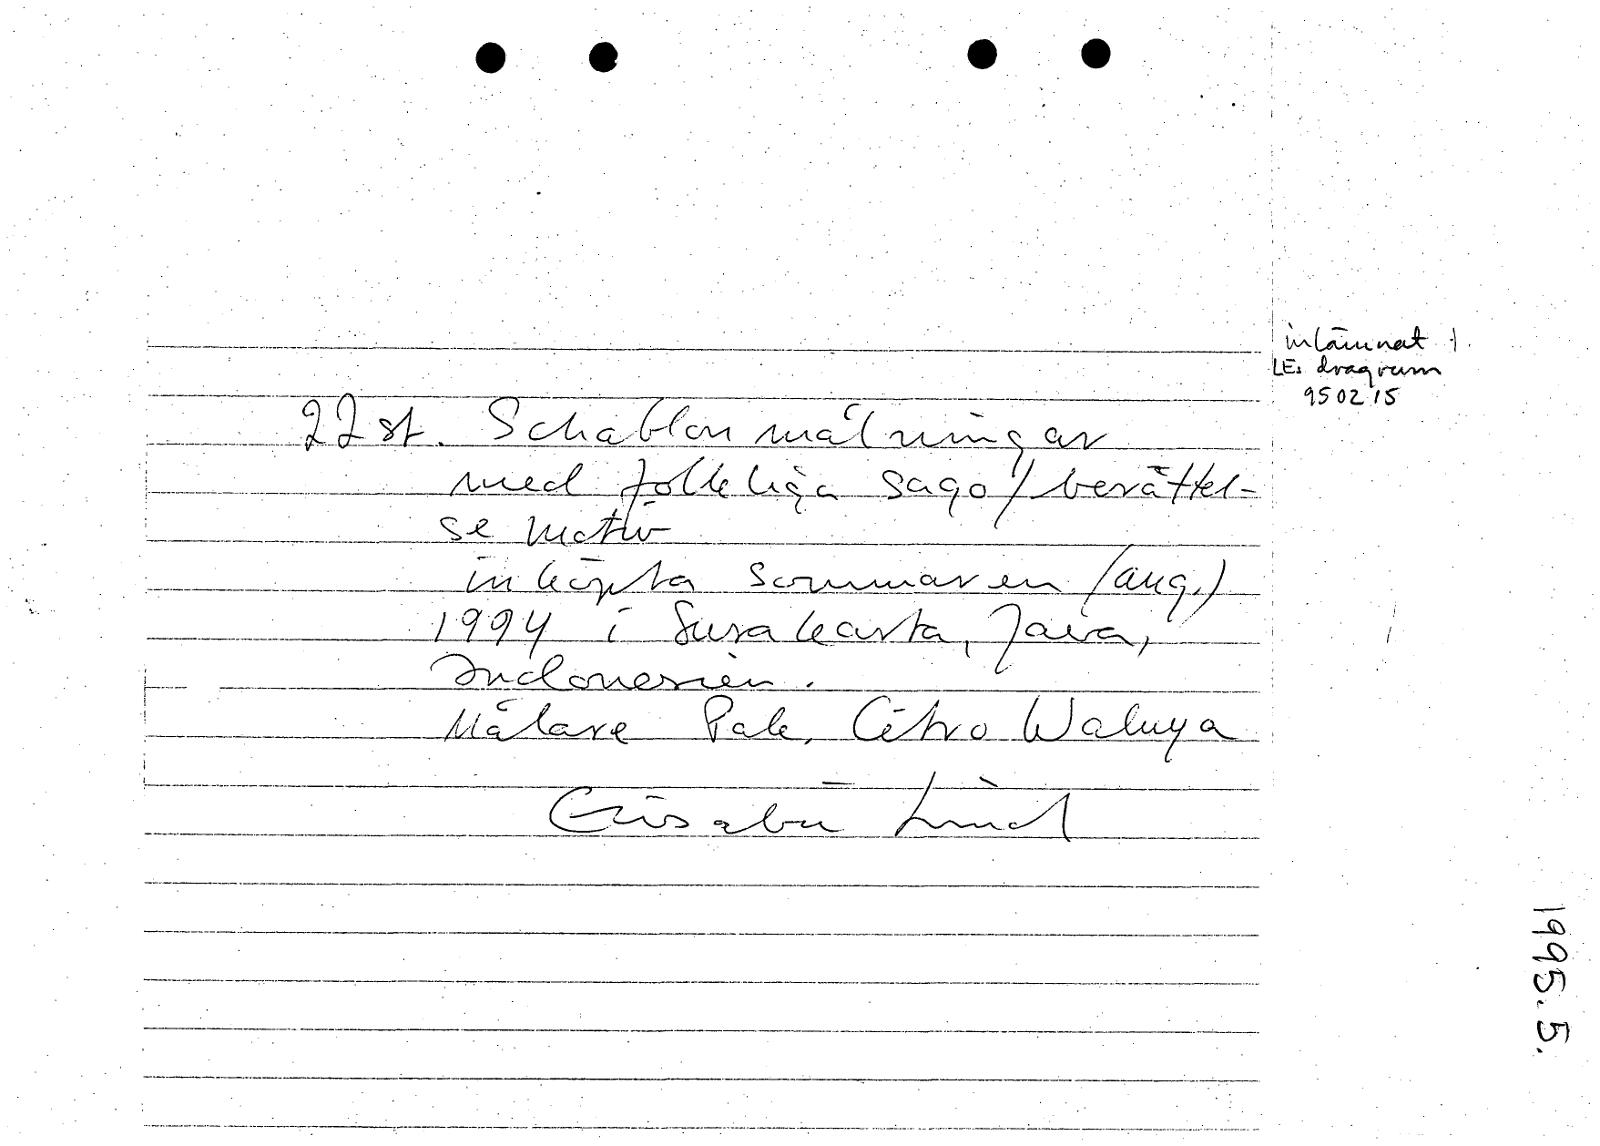 inlämnat i
LEs dragrum
950215
22 st. Schablonmålningar
med folkliga sago/berättel-
se motiv
inköpta sommaren (aug.)
1994 i Surakarta, Java,
Indonesien.
Målare Pak. Citro Waluyo
Elisabet Lind
1995.5.